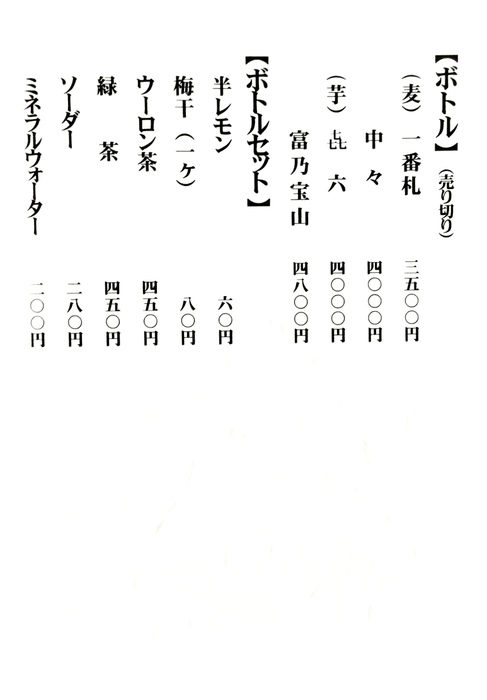 【ボトル】（売り切り）
（麦）一番札 三五〇〇円
中々 四〇〇〇円
（芋）㐂六 四〇〇〇円
富乃宝山 四八〇〇円
【ボトルセット】
半レモン 六〇円
梅干（一ヶ） 八〇円
ウーロン茶 四五〇円
緑茶 四五〇円
ソーダー 二八〇円
ミネラルウォーター 二〇〇円